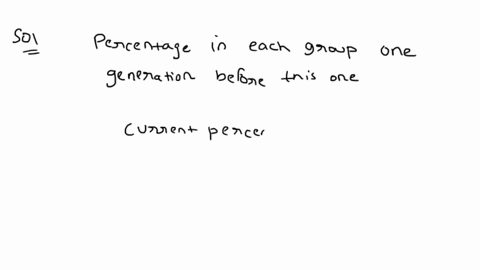 Sol
Percentage in each group one
generation before this one
current percer